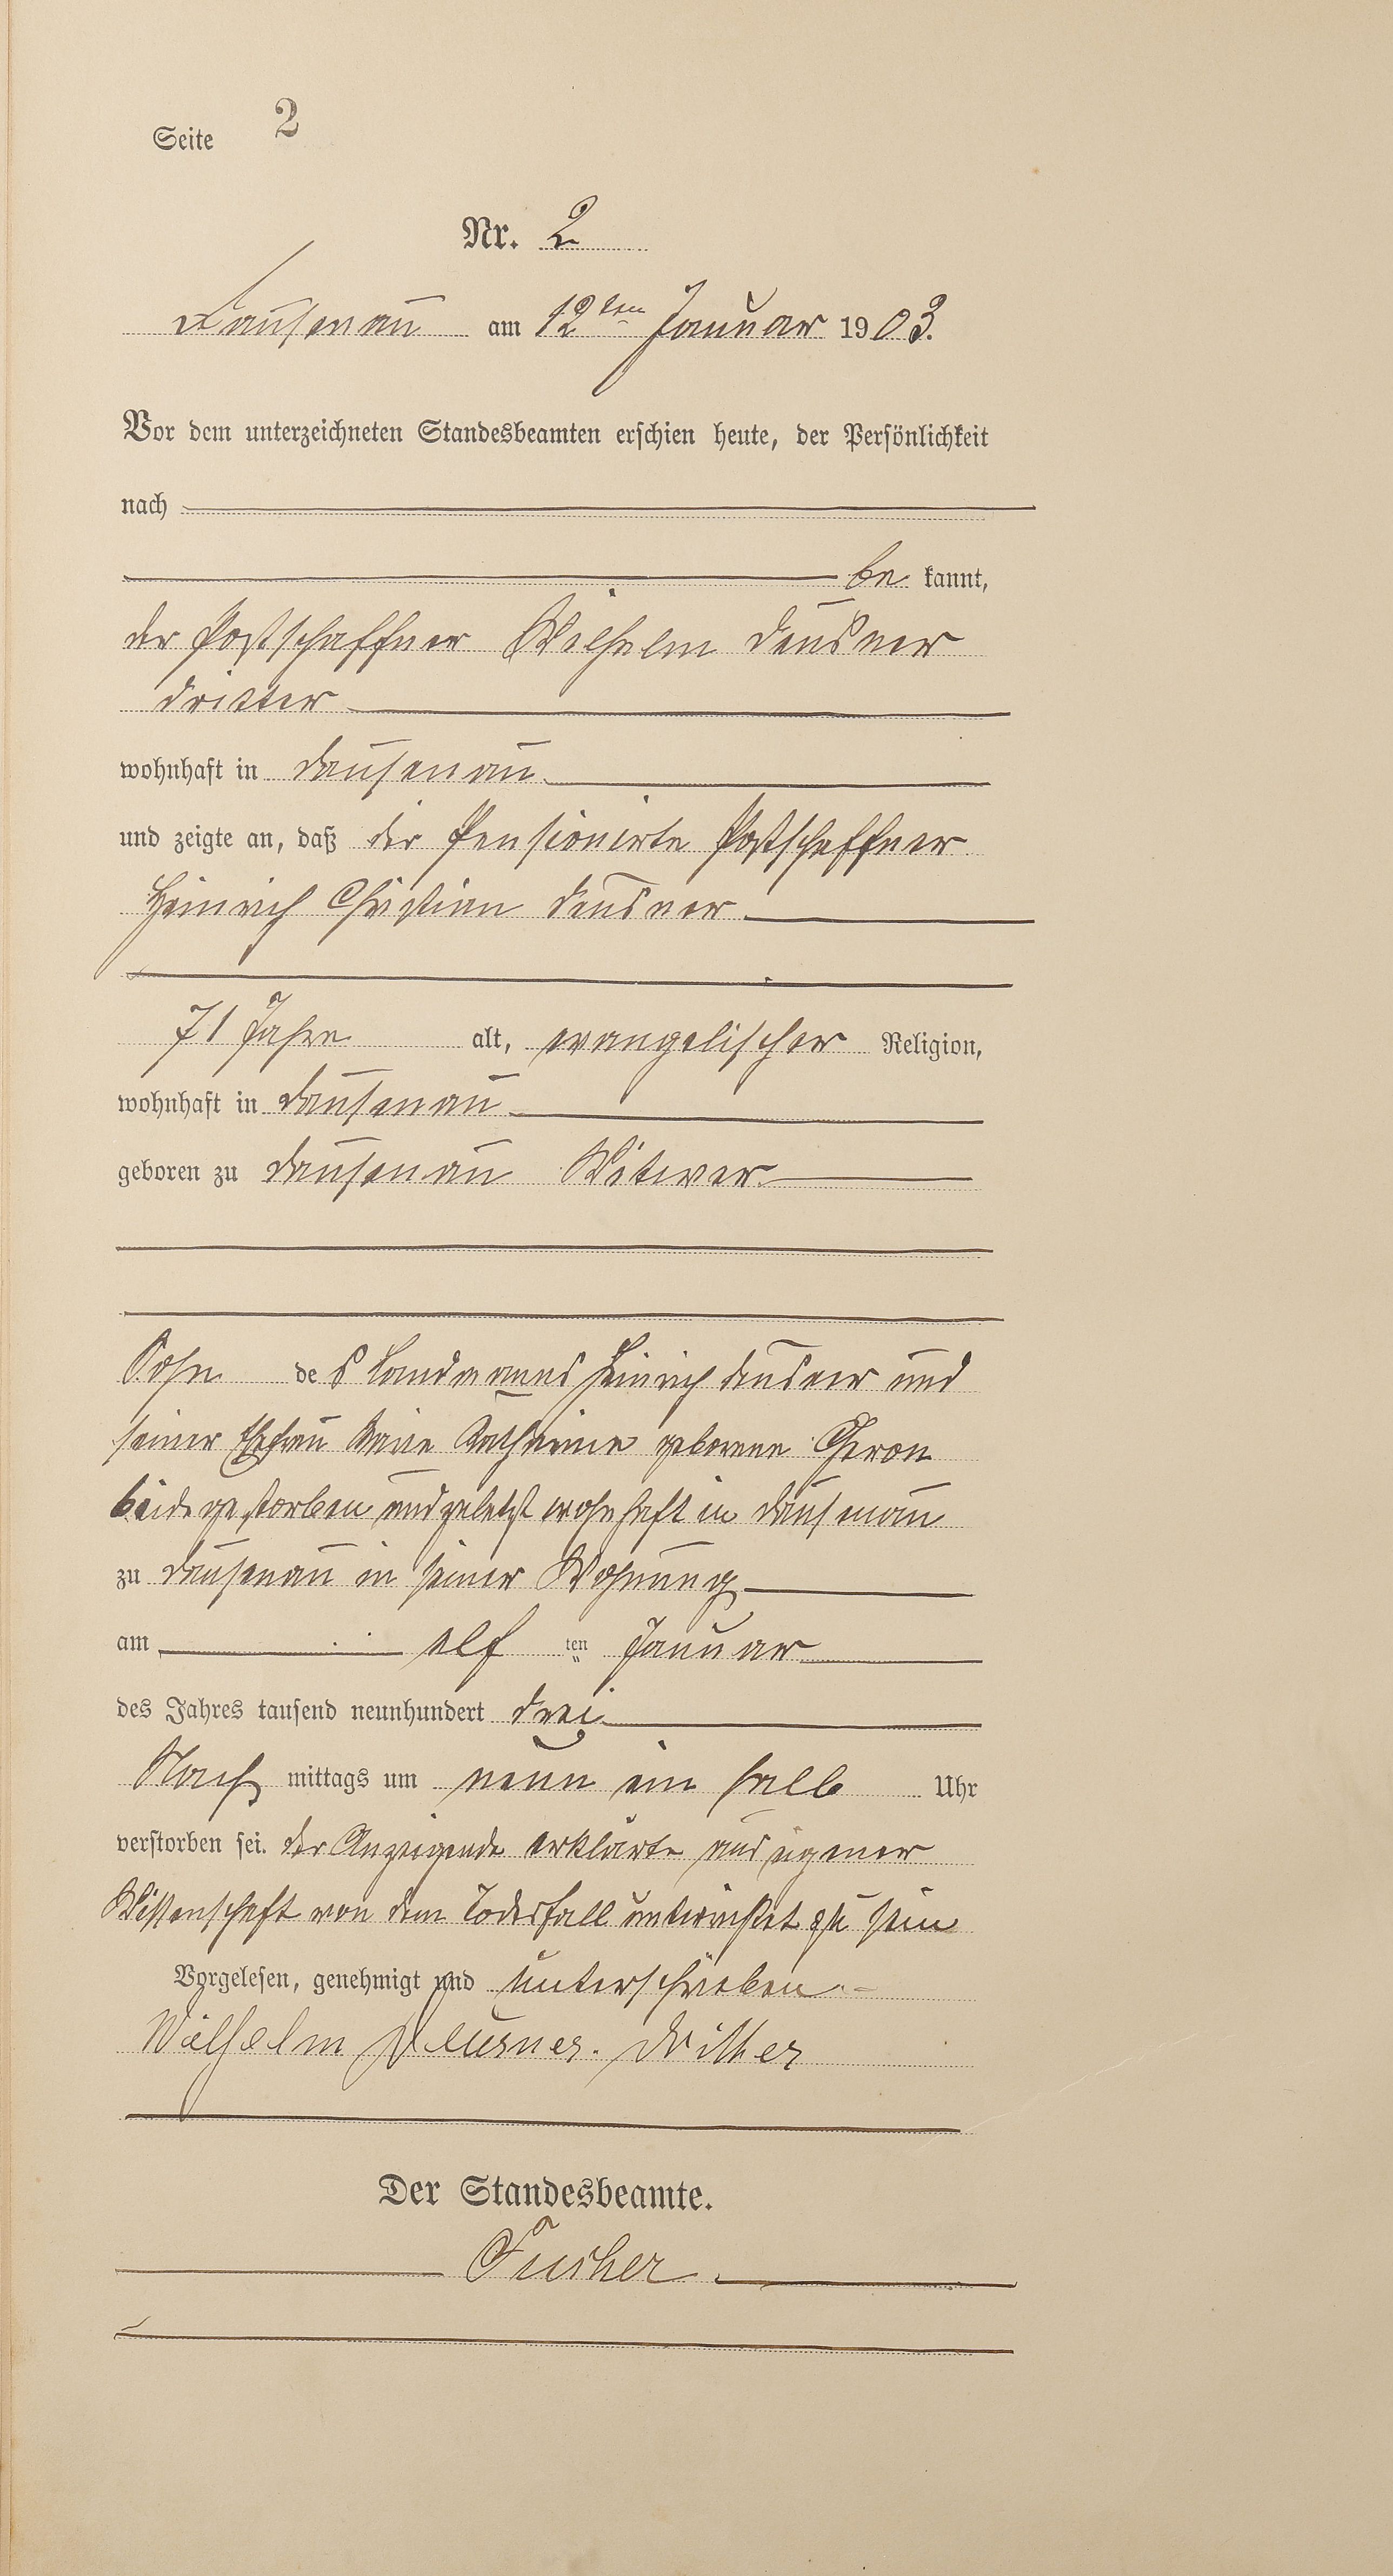 Seite 2
Nr. 2
Dausenau am 12ten Januar 1903.
Vor dem unterzeichneten Standesbeamten erschien heute, der Persönlichkeit
nach
be kannt,
der Postschaffner Wilhelm Deusner
dritter
wohnhaft in Dausenau
und zeigte an, daß der Pensionirte Postschaffner
Heinrich Christian Deusner
71 Jahre alt, evangelischer Religion,
wohnhaft in Dausenau
geboren zu Dausenau Witwer
Sohn des Landmanns Heinrich Deusner und
seiner Ehefrau Katharine geborene
beide gestorben und zuletzt wohnhaft in Dausenau
zu Dausenau in seiner Wohnung
am elf ten Januar
des Jahres tausend neunhundert drei
Nach mittags um neun ein halb Uhr
verstorben sei. Der Anzeigende erklärte aus eigener
Wissenschaft von dem Todesfall unterrichtet zu sein
Vorgelesen, genehmigt und unterschrieben
Wilhelm Deusner. Dritter
Der Standesbeamte.